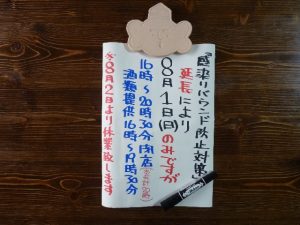 『感染リバウンド防止対策』
延長により
8月1日(日)のみですが
16時〜20時30分閉店
酒類提供16時〜19時30分
※8月2日より休業致します